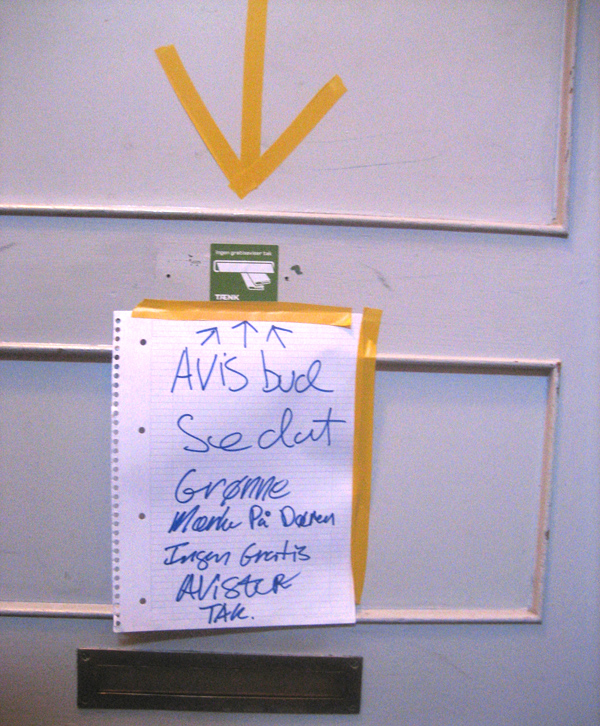 Ingen gratisaviser tak
TÆNK
AVis bud
See dat
Grønne
Mærke På Døren
Ingen Gratis
AVister
TAK.